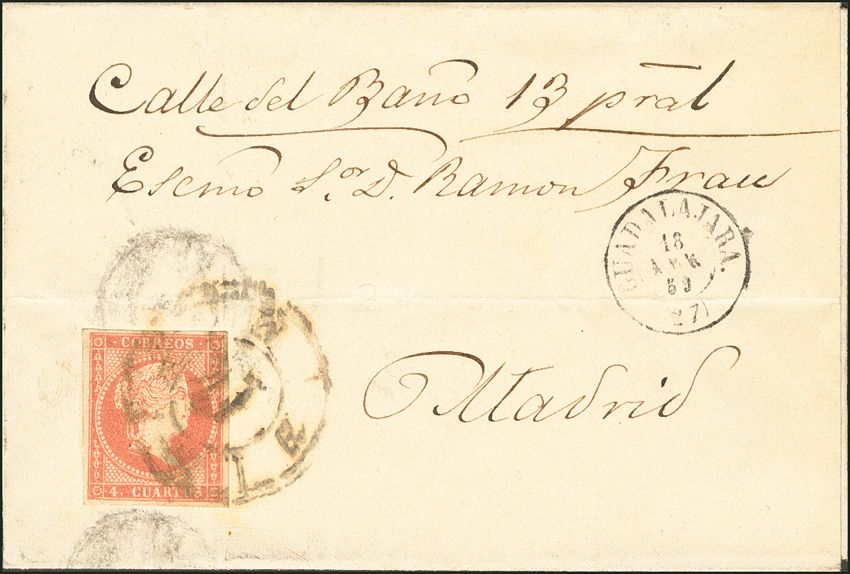 Calle del Baño 13 pral
Escmo Sor. D. Ramon Frau
GUADALAJARA.
18
59
(27)
Madrid
CORREOS
4. CUARTOS